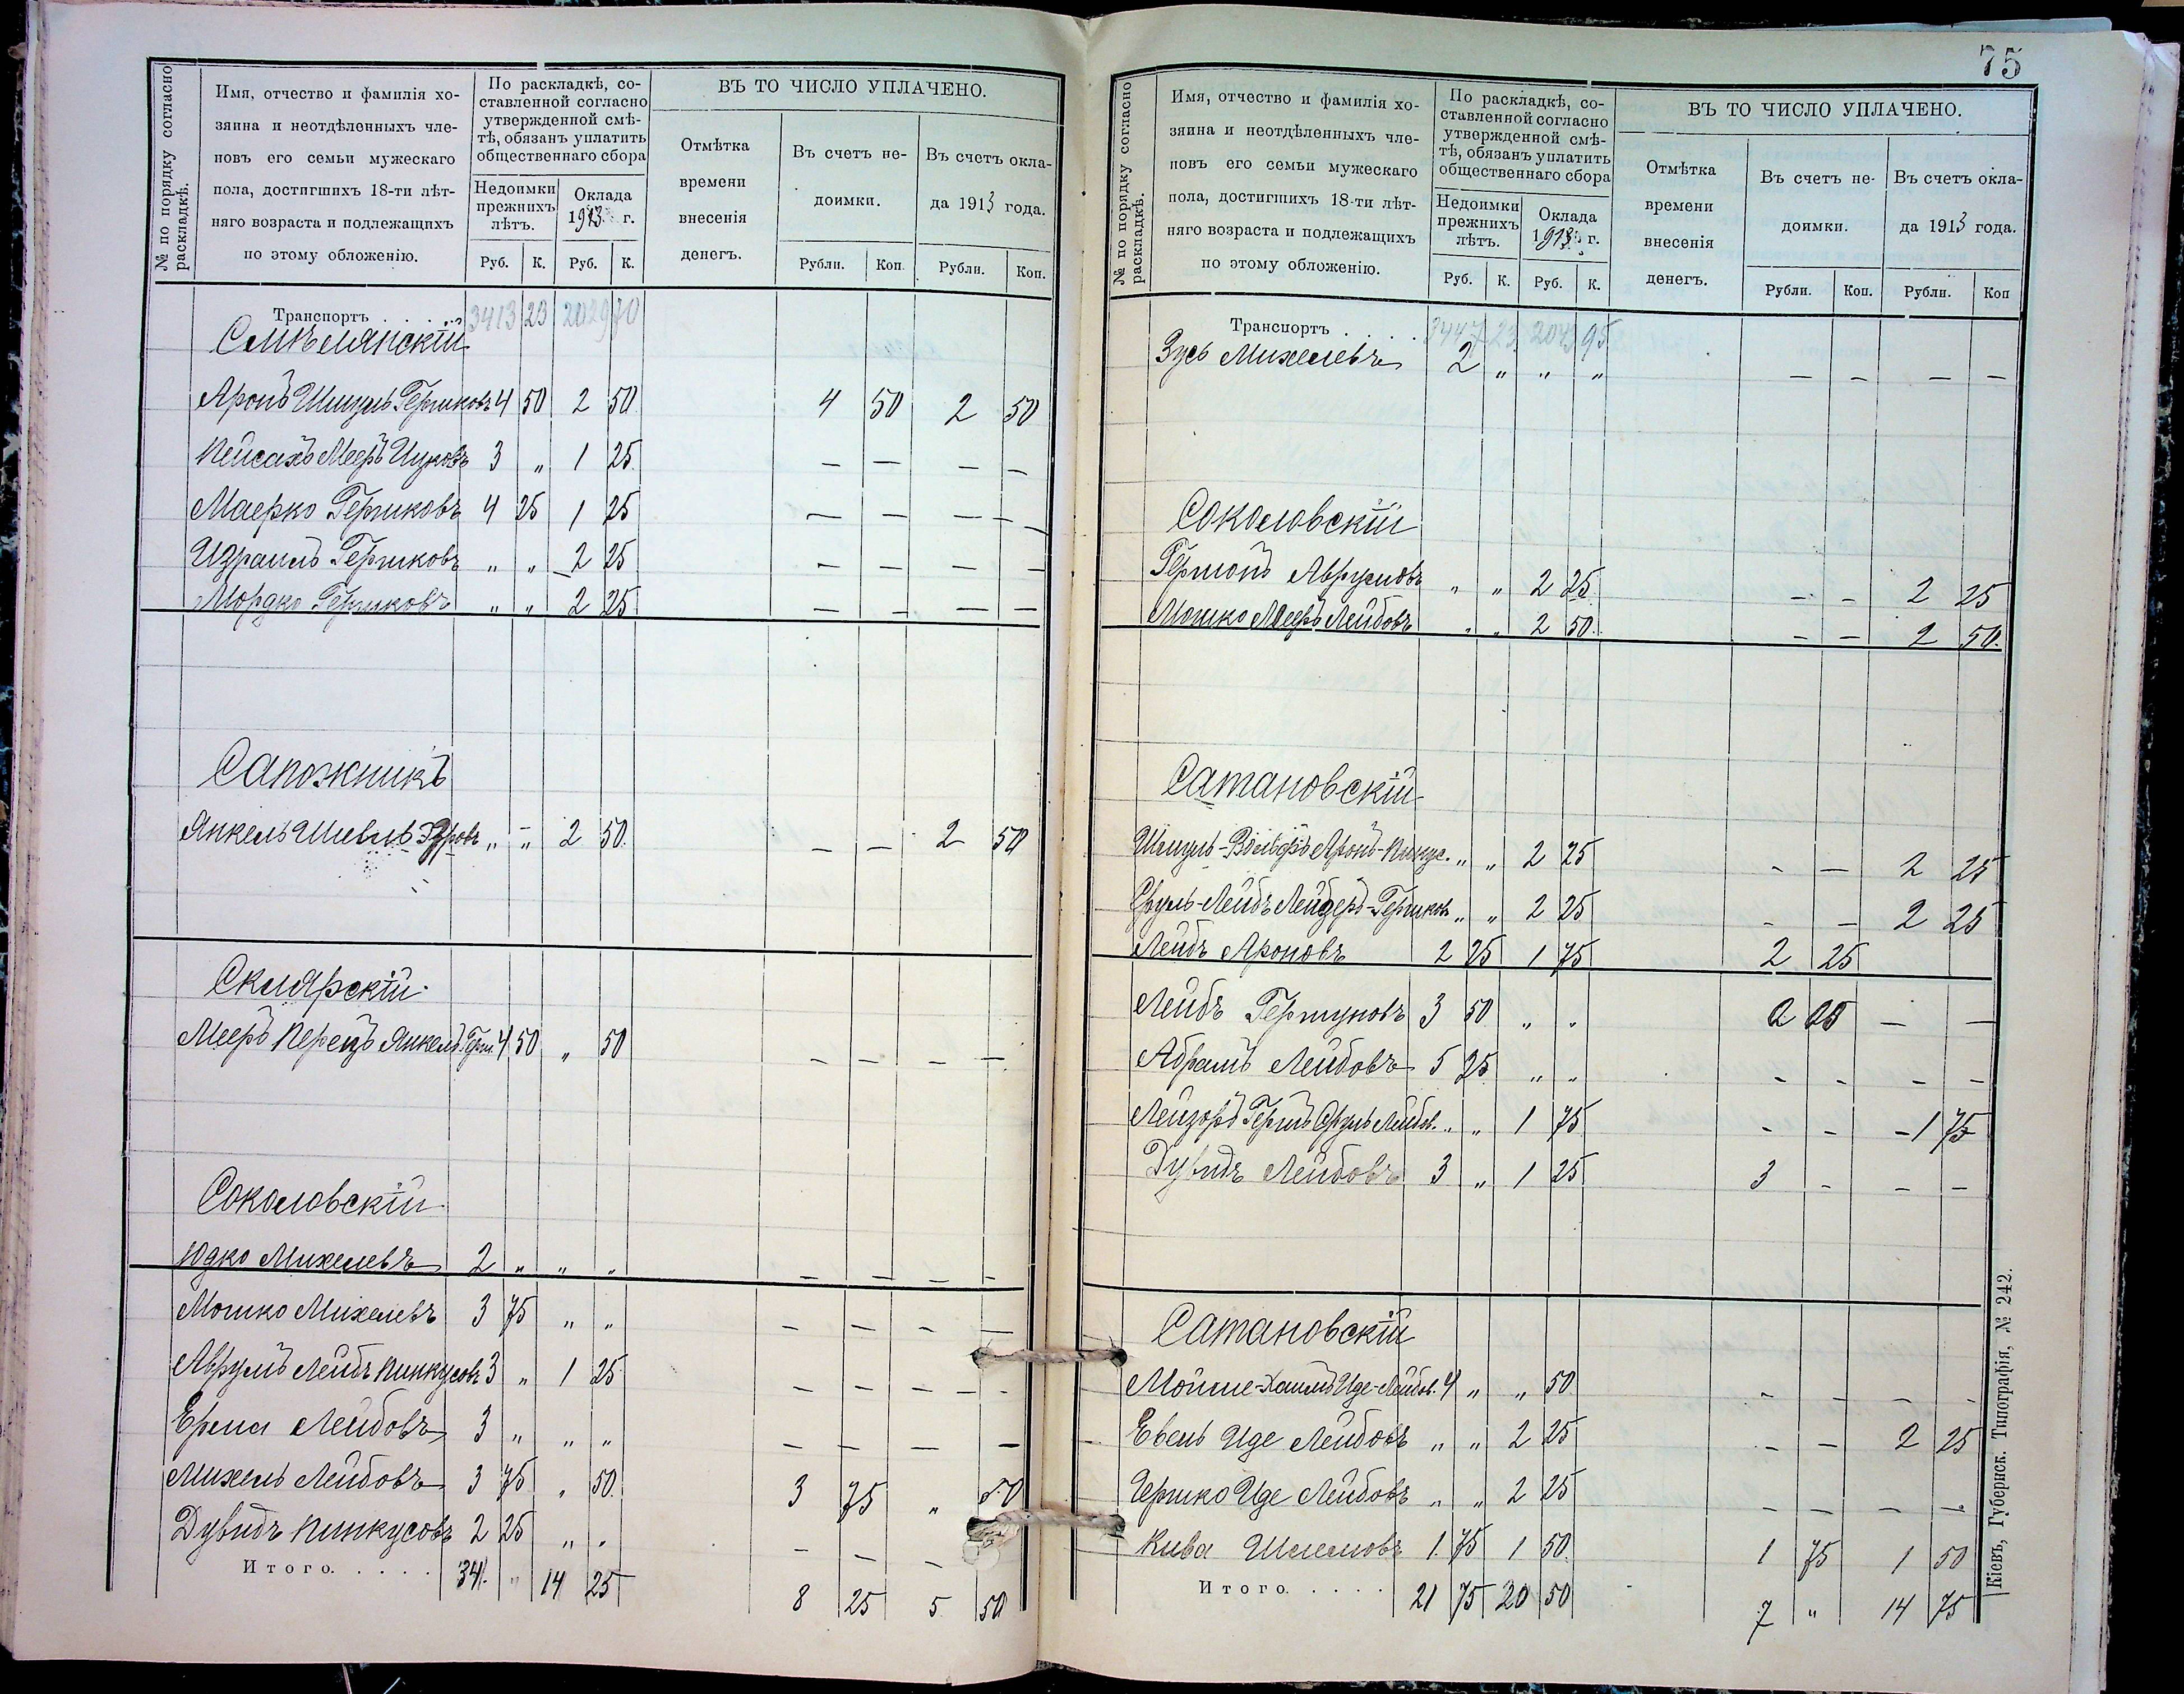 75
№ по порядку согласно
раскладкѣ.
Имя, отчество и фамилія хо-
зяина и неотдѣленныхъ чле-
новъ его семьи мужескаго
пола, достигшихъ 18-ти лѣт-
няго возраста и подлежащихъ
по этому обложенію.
По раскладкѣ, со-
ставленной согласно
утвержденной смѣ-
тѣ, обязанъ уплатить
общественнаго сбора
Недоимки
прежнихъ
лѣтъ.
Оклада
1913 г.
Руб. К. Руб. К.
ВЪ ТО ЧИСЛО УПЛАЧЕНО.
Отмѣтка
времени
внесенія
денегъ.
Въ счетъ не-
доимки.
Въ счетъ окла-
да 1913 года.
Рубли. Коп. Рубли. Коп.
Транспортъ . . . . 3413 23 2029 70
Смѣлянскій
Аронъ Шмуль Гершковъ 4 50 2 50 4 50 2 50
Пейсахъ Мееръ Ицковъ 3 „ 1 25 — — — —
Маерко Гершковъ 4 25 1 25 — — — —
Израиль Гершковъ „ „ 2 25 — — — —
Мордко Гершковъ „ „ 2 25 — — — —
Сапожникъ
Янкель Шевель „ „ 2 50 — — 2 50
Склярскій
Мееръ Перецъ Янкель Герш. 4 50 „ 50 — — — —
Соколовскій
Юдко Михелевъ 2 „ „ „ — — — —
Мошко Михелевъ 3 75 „ „ — — — —
Аврумъ Лейбъ Пинкусовъ 3 „ 1 25 — — — —
Ерма Лейбовъ 3 „ „ „ — — — —
Михель Лейбовъ 3 75 „ 50 3 75 „ 50
Дувидъ Пинкусовъ 2 25 „ „ — — —
Итого. . . . . 34 „ 14 25 8 25 5 50
№ по порядку согласно
раскладкѣ.
Имя, отчество и фамилія хо-
зяина и неотдѣленныхъ чле-
новъ его семьи мужескаго
пола, достигшихъ 18-ти лѣт-
няго возраста и подлежащихъ
по этому обложенію.
По раскладкѣ, со-
ставленной согласно
утвержденной смѣ-
тѣ, обязанъ уплатить
общественнаго сбора
Недоимки
прежнихъ
лѣтъ.
Оклада
1913 г.
Руб. К. Руб. К.
ВЪ ТО ЧИСЛО УПЛАЧЕНО.
Отмѣтка
времени
внесенія
денегъ.
Въ счетъ не-
доимки.
Въ счетъ окла-
да 1913 года.
Рубли. Коп. Рубли. Коп
Транспортъ . . . . 3447 23 2043 95
Зусь Михелевъ 2 „ „ „ — — — —
Соколовскій
Гершонъ Аврумовъ „ „ 2 25 — — 2 25
Мошко Мееръ Лейбовъ „ „ 2 50 — — 2 50
Сатановскій
Шмуль-Вольфъ Аронъ-Пинкус. „ „ 2 25 — — 2 25
Сруль-Лейбъ Лейзеръ-Гершков. „ „ 2 25 — — 2 25
Лейбъ Ароновъ 2 25 1 75 2 25
Лейбъ Гершуновъ 3 50 „ „ — —
Абрамъ Лейбовъ 5 25 „ „ — — — —
Лейзоръ Гершъ Сруль Лейбов. „ „ 1 75 — — 1 75
Дувидъ Лейбовъ 3 „ 1 25 3 — — —
Сатановскій
Мойше-Хаимъ Иде-Лейбов. 4 „ „ 50 — — — —
Евель Иде Лейбовъ „ „ 2 25 — — 2 25
Гершко Иде Лейбовъ „ „ 2 25 — — — —
Кива Шлемовъ 1 75 1 50 1 75 1 50
Итого. . . . . 21 75 20 50 7 „ 14 75
Кіевъ, Губернск. Типографія, № 242.